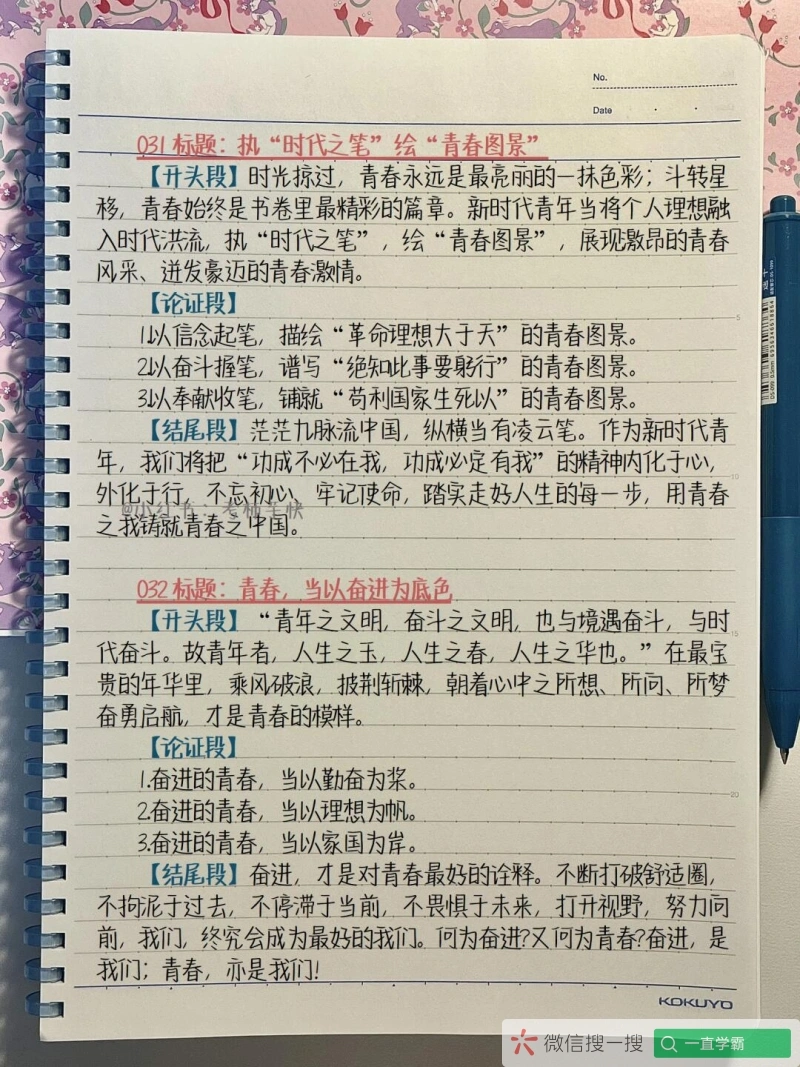 No.
Date
031 标题：执“时代之笔”绘“青春图景”
【开头段】时光掠过，青春永远是最亮丽的一抹色彩；斗转星
移，青春始终是书卷里最精彩的篇章。新时代青年当将个人理想融
入时代洪流，执“时代之笔”，绘“青春图景”，展现激昂的青春
风采、迸发豪迈的青春激情。
【论证段】
1.以信念起笔，描绘“革命理想大于天”的青春图景。
2.以奋斗握笔，谱写“绝知此事要躬行”的青春图景。
3.以奉献收笔，铺就“苟利国家生死以”的青春图景。
【结尾段】茫茫九脉流中国，纵横当有凌云笔。作为新时代青
5
年，我们将把“功成不必在我，功成必定有我”的精神内化于心，
10
外化于行，不忘初心、牢记使命，踏实走好人生的每一步，用青春
之我铸就青春之中国。
032 标题：青春，当以奋进为底色
【开头段】“青年之文明，奋斗之文明，也与境遇奋斗，与时
15
代奋斗。故青年者，人生之玉，人生之春，人生之华也。”在最宝
贵的年华里，乘风破浪，披荆斩棘，朝着心中之所想、所问、所梦
奋勇启航，才是青春的模样。
【论证段】
1.奋进的青春，当以勤奋为桨。
2.奋进的青春，当以理想为帆。
20
3.奋进的青春，当以家国为岸。
【结尾段】奋进，才是对青春最好的诠释。不断打破舒适圈，
不拘泥于过去，不停滞于当前，不畏惧于未来，打开视野，努力向
前，我们，终究会成为最好的我们。何为奋进?又何为青春?奋进，是
我们；青春，亦是我们!
KOKUYO
微信搜一搜
一直学霸